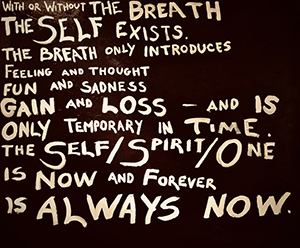 WITH OR WITHOUT THE BREATH
THE SELF EXISTS.
THE BREATH ONLY INTRODUCES
FEELING AND THOUGHT
FUN AND SADNESS
GAIN AND LOSS – AND IS
ONLY TEMPORARY IN TIME.
THE SELF/SPIRIT/ONE
IS NOW AND FOREVER
IS ALWAYS NOW.